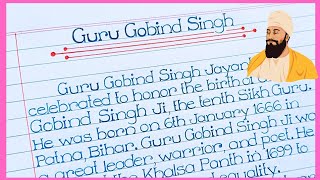 Guru Gobind Singh
Guru Gobind Singh Jayan
celebrated to honor the birth of
Gobind Singh Ji, the tenth Sikh Guru.
He was born on 6th January 1666 in
Patna, Bihar. Guru Gobind Singh Ji wa
great leader, warrior, and poet. He
the Khalsa Panth in 1699 to
equality.